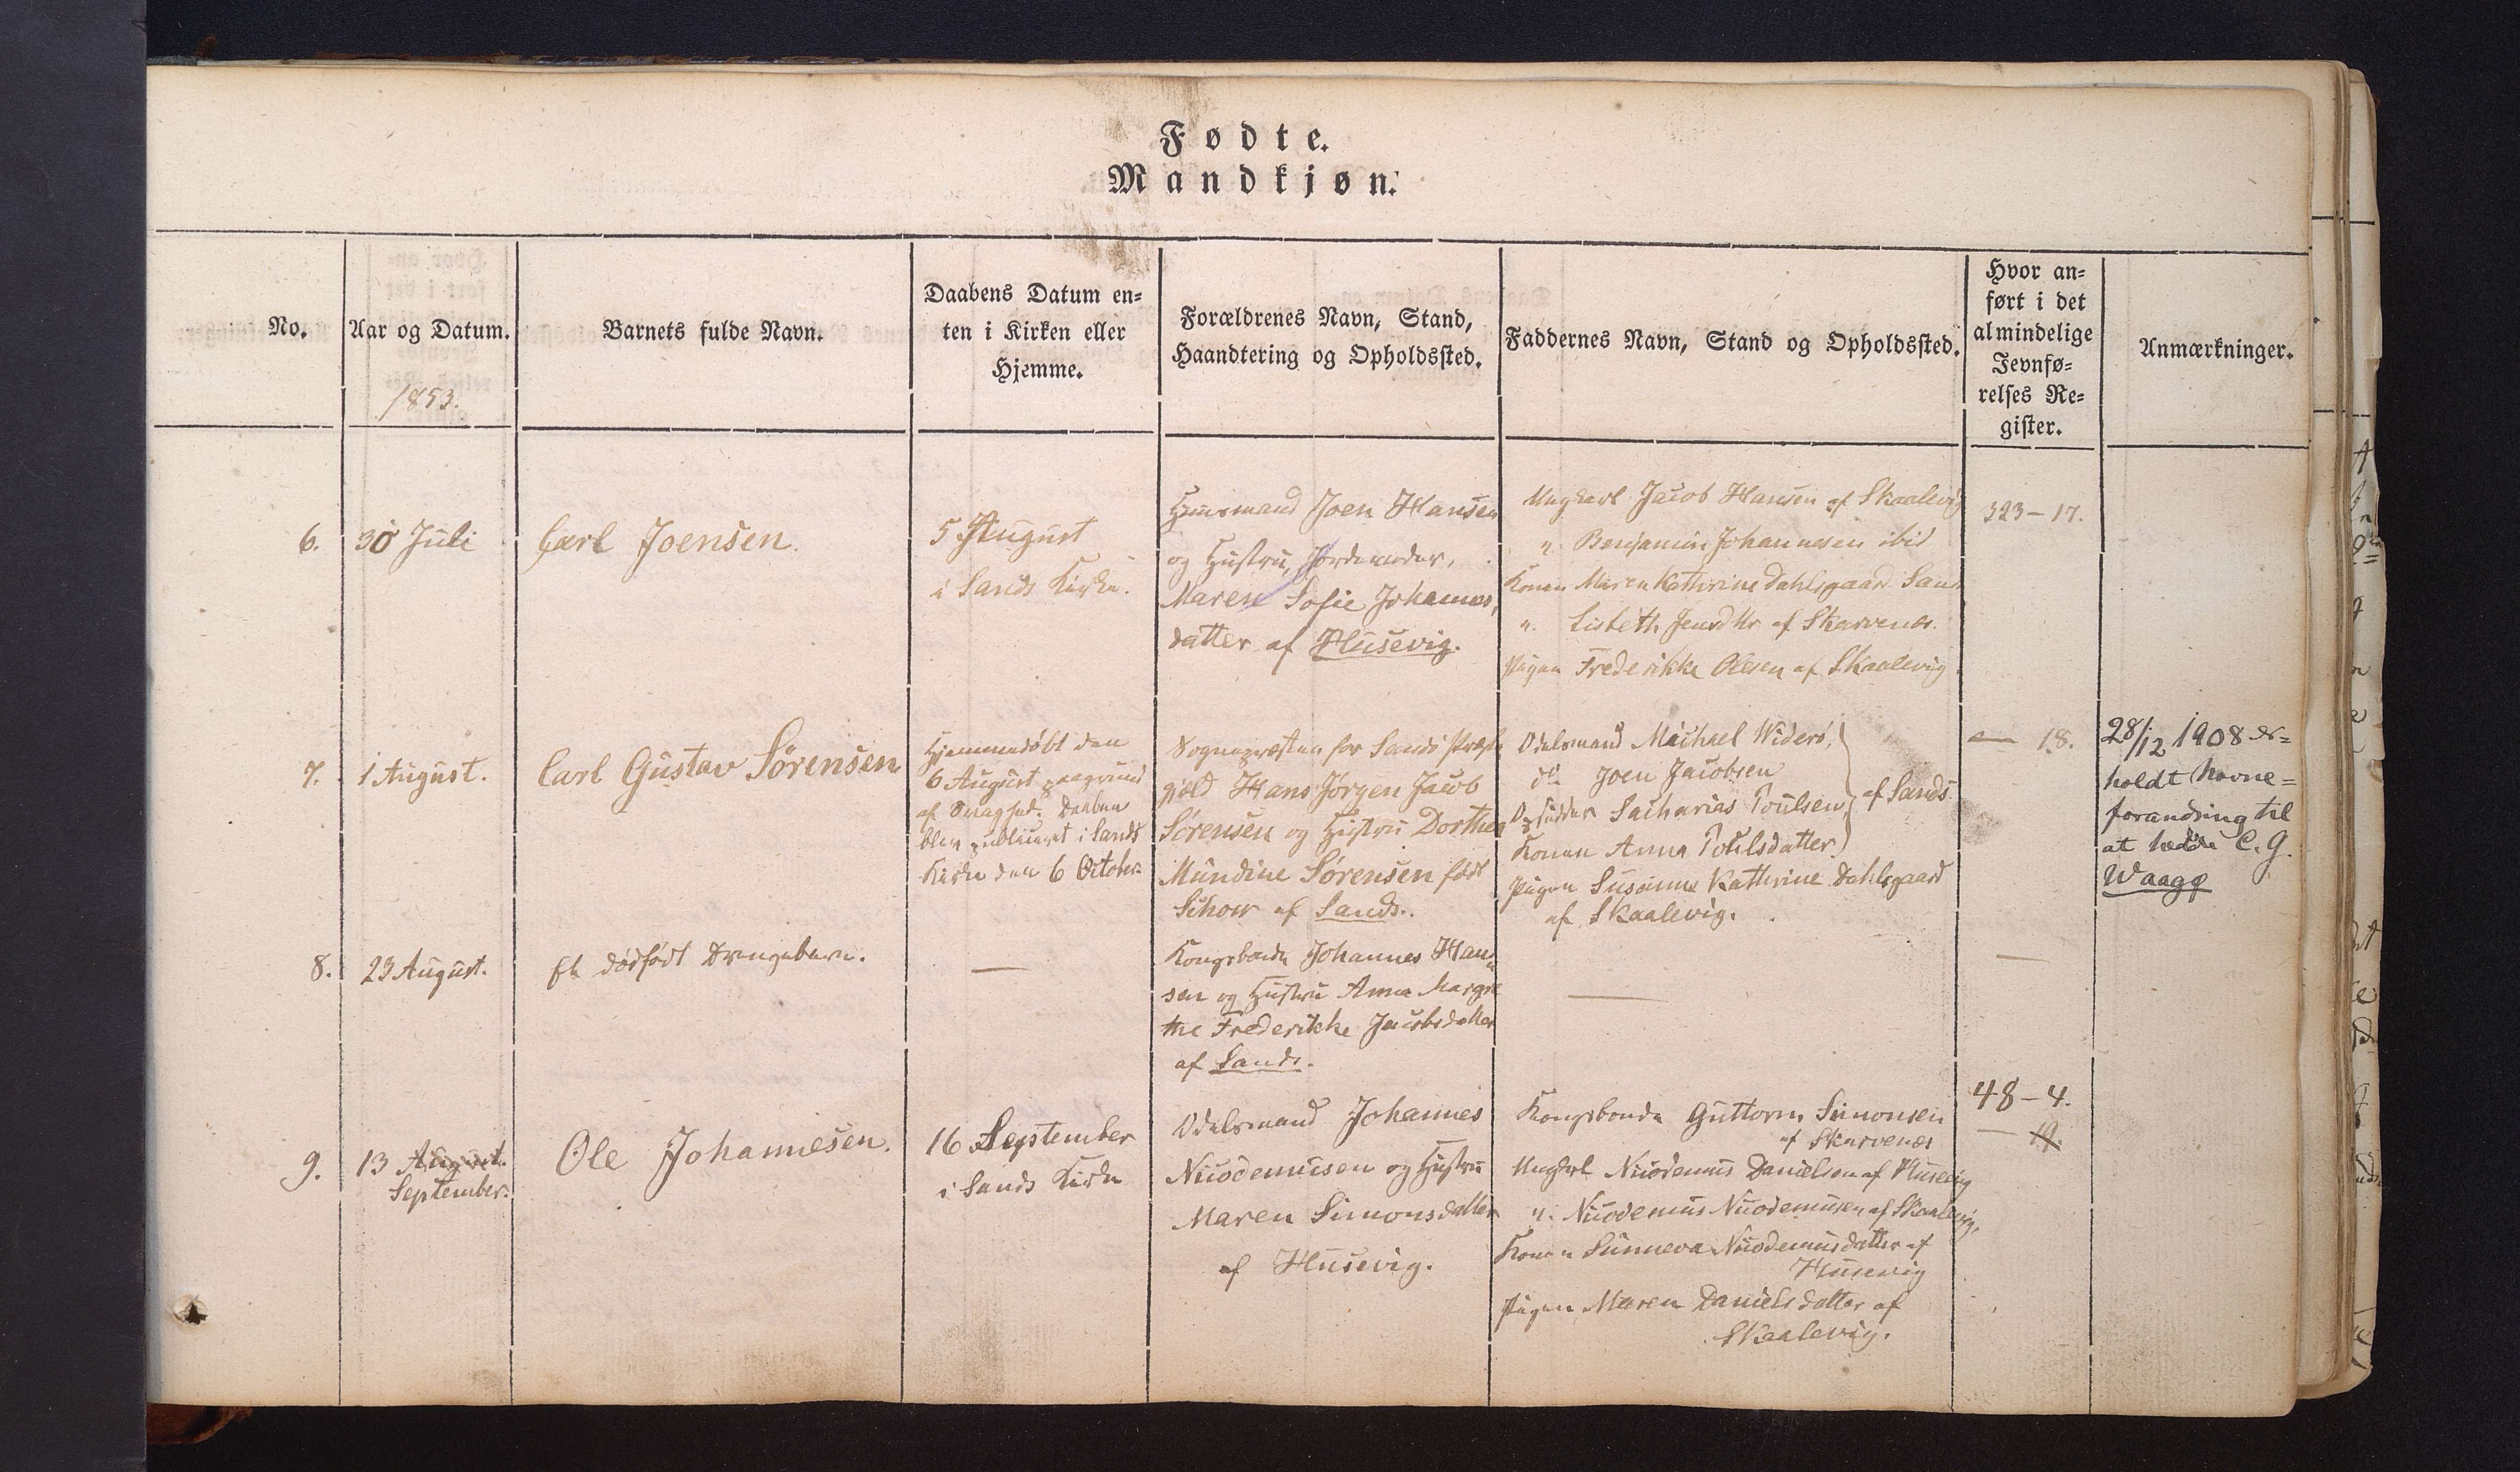 Fødte.
Mandkjøn.
No.
Aar og Datum.
1853.
Barnets fulde Navn.
Daabens Datum en=
ten i Kirken eller
Hjemme.
Forældrenes Navn, Stand,
Haandtering og Opholdssted.
Faddernes Navn, Stand og Opholdssted.
Hvor an=
ført i det
almindelige
Jevnfø=
relses Re=
gister.
Anmærkninger.
6.
30 Juli
Carl Joensen.
5 August
i Sands Kirke.
Huusmand Joen Hansen
og Hustru, Jordemoder,
Maren Sofie Johannes,
datter af Husevig.
Ungkarl Jacob Hansen af Skaalevig
" Benjamin Johannesen ibid
Konen Maren Kathrine Dahlsgaard Sand
" Lisbeth Jensdttr af Skarvenæs.
Pigen Frederikke Olesen af Skaalevig
323-17.
7.
1 August.
Carl Gustav Sørensen
Hjemmedøbt den
6 August paagrund
af Svaghed. Daaben
blev publiceret i Sands
Kirke den 6 October.
Sognepræsten for Sandø Præste
gjeld Hans Jørgen Jacob
Sørensen og Hustru Dorthea
Mundine Sørensen født
Schow af Sands.
Odelsmand Michael Widerø,
do Joen Jacobsen
Opsidder Sacharias Poulsen,
Konen Anna Poulsdatter
af Sands
Pigen Susanne Kathrine Dahlsgaard
af Skaalevig.
— 18.
28/12 1908 er=
holdt Navne=
forandring til
at hedde C. G.
Waagø
8.
23 August.
Et dødfødt Drengebarn.
—
Kongsbonde Johannes Han
sen og Hustru Anna Margre
the Frederikke Jacobsdatter
af Sands.
—
—
9.
13 August.
September.
Ole Johannesen.
16 September
i Sands Kirke
Odelsmand Johannes
Nicodemusen og Hustru
Maren Simonsdatter
af Husevig.
Kongsbonde Guttorm Simonsen
af Skarvenæs
Ungkrl Nicodemus Danielsen af Husevig
" Nicodemus Nicodemusen af Skaalevig,
Konen Sunneva Nicodemusdatter af
Husevig
Pigen Maren Danielsdatter af
Skaalevig.
48-4.
— 19.